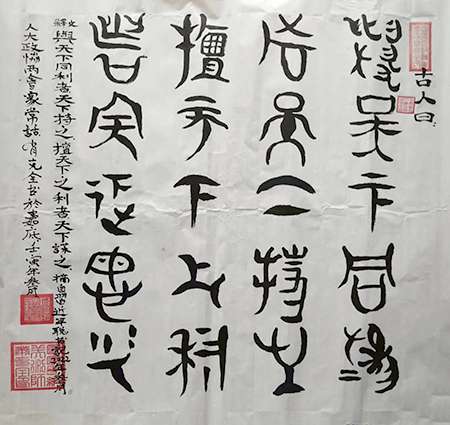 古人曰:
與天下同利
者天下持之
擅天下之利
者天下誅之
釋文 與天下同利者天下持之擅天下之利者天下誅之 摘自習近平
人大政協兩會家常話 肖克全书於嘉 壬寅年叁月